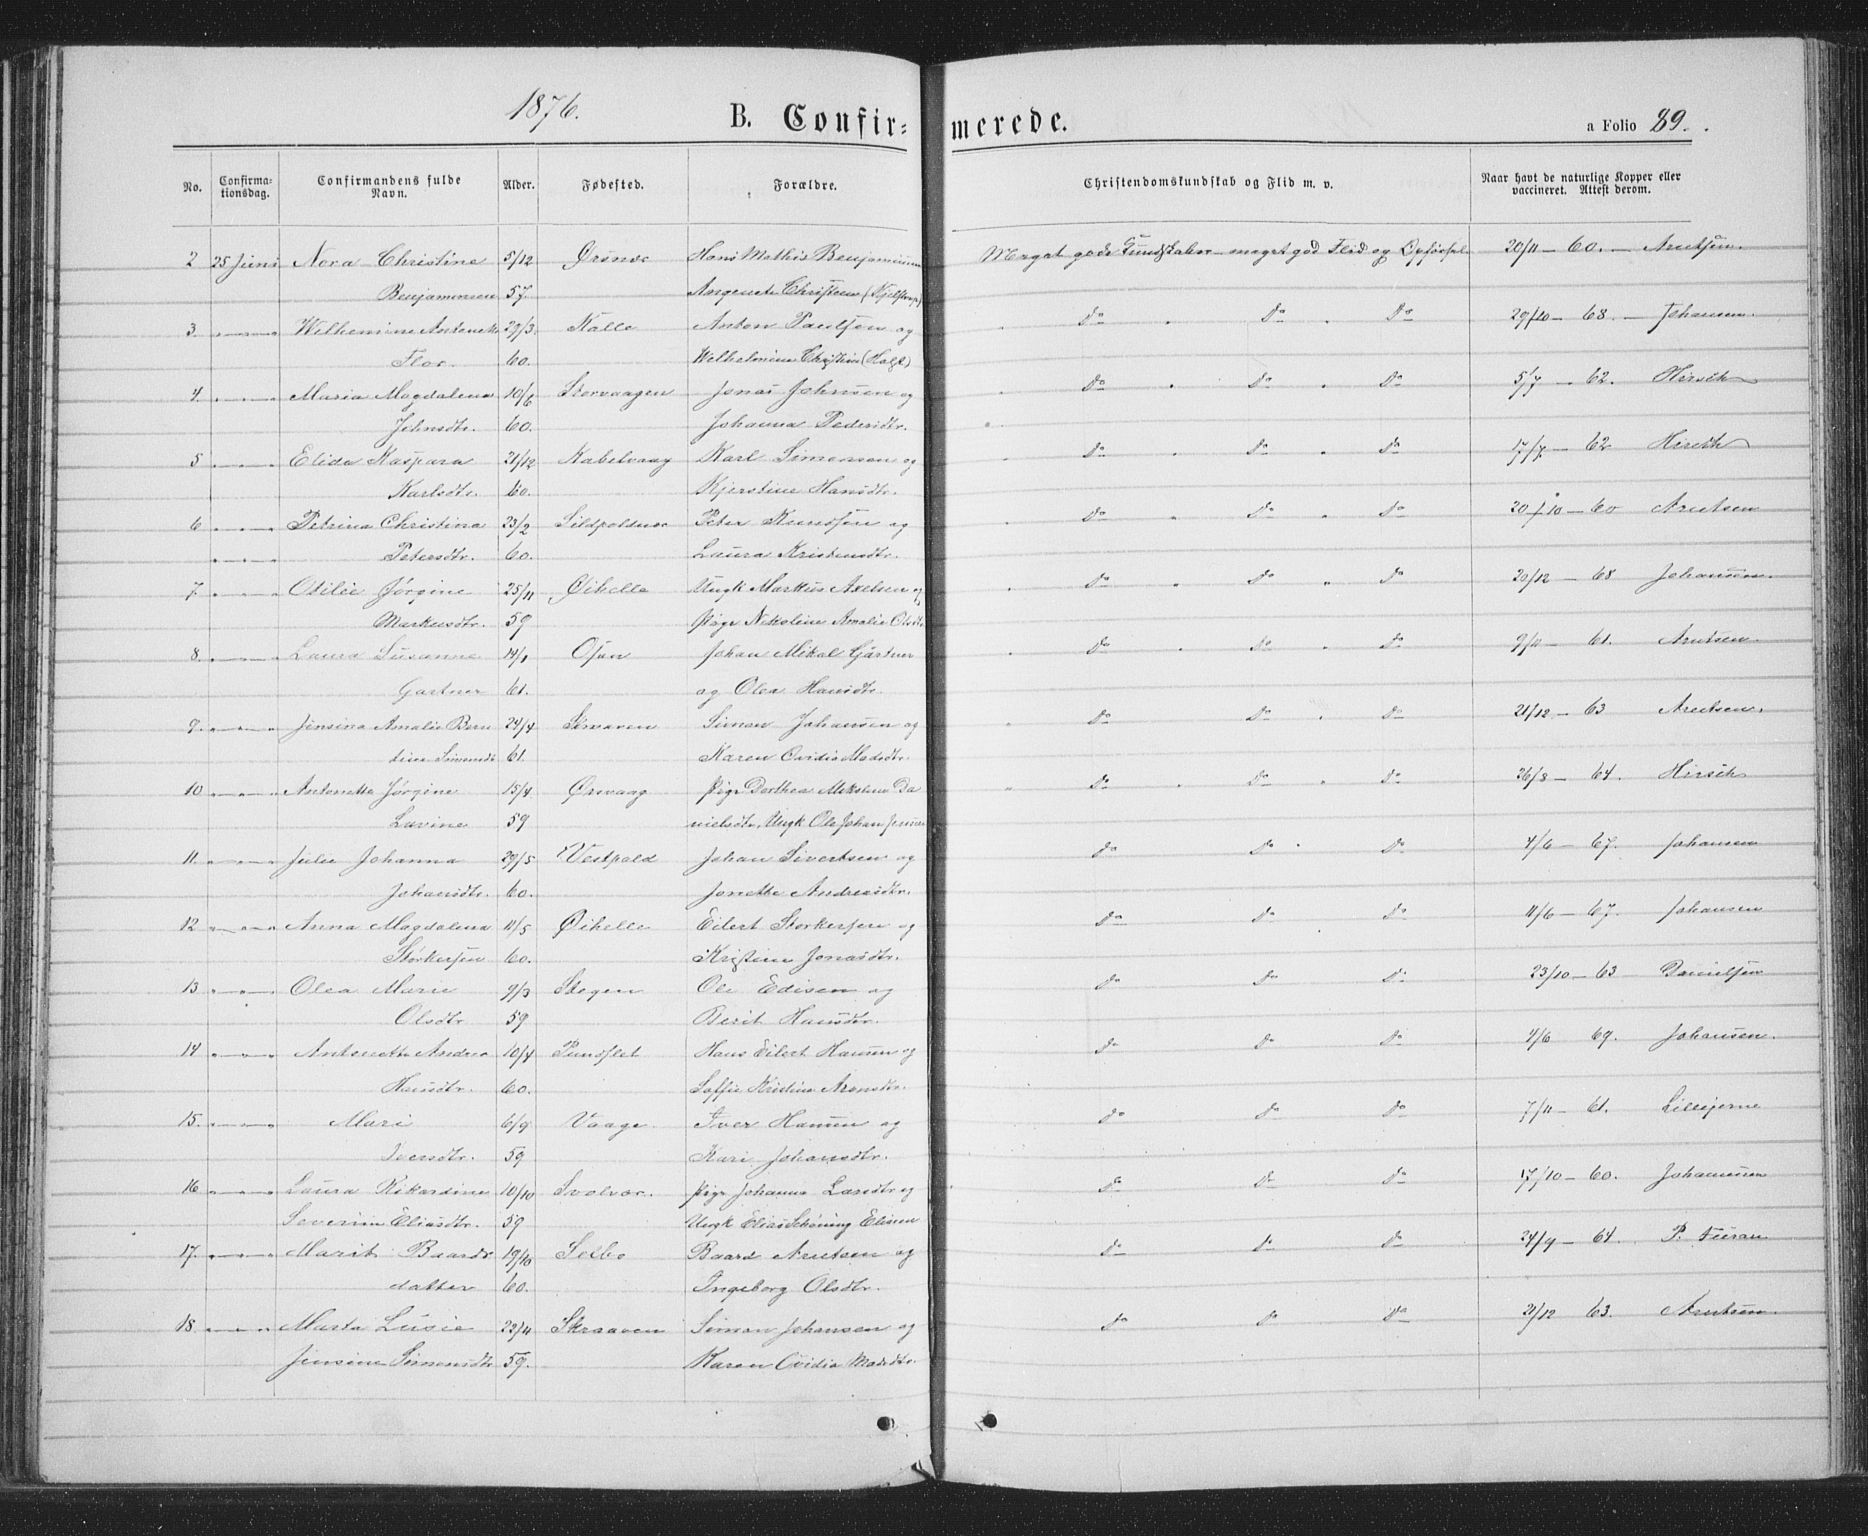 1876.
B. Confir= merede.
a Folio 89.
No. Confirma-tionsdag. Confirmandens fulde Navn. Alder. Fødested. Forældre. Christendomskundskab og Flid m. v. Naar havt de naturlige Kopper eller vaccineret. Attest derom.
2 25 Juni Nora Christine 5/12 Ørsnes Hans Mathis Benjaminsen Meget gode Kundskaber meget god Flid og Opførsel 20/11 - 60. - Arntsen.
Benjaminsen 57. Angenete Christens
3 " " Wilhemine Antonette 29/3 Kalle Anton Paulsen og Do Do Do 29/10 - 68. - Johansen.
Flor. 60. Wilhelmine Christine
4. " " Maria Magdalena 10/6 Storvaagen Jonas Johnsen og Do Do Do 5/7 - 62. Hirsch
Johnsdtr. 60. Johanna Pedersdtr.
5 " " Elida Kaspara 21/12 Kabelvaag Karl Simonsen og Do Do Do 17/7 - 62 Hirsch
Karlsdtr. 60. Kjerstine Hansdtr.
6 " " Petrina Christina 23/2 Sildpoldnes Peter Knudsen og Do Do Do 20/10 - 60 Arntsen
" " Petersdtr. 60. Laura Kristensdtr.
7 " " Otilie Jørgine 25/11 Øihelle Ungk Markus Axelsen og Do Do Do 20/12 - 68 Johansen.
Markusdtr. 59 Pige Nikoline Amalie Olsdtr
8. " " Laura Susanne 14/1 Osan Johan Mikal Gjärtner Do Do Do 9/11 - 61. Arntsen.
Gartner 61. og Olea Hansdtr.
9. " " Jensina Amalie Bern 24/4 Skraaven Simon Johansen og Do Do Do 21/12 - 63 Arntsen.
tine Simonsdt 61. Karen Ovidia Madsdtr.
10 " " Antonette Jørgine 15/4 Ørsvaag Pige Dorthea Nikoline Da Do Do Do 26/8 - 64. Hirsch
Lavine 59 nielsdtr, Ungk Ole Johan Jensen
11. " " Julie Johanna 29/5 Vestpold Johan Sivertsen og Do Do Do 4/6 - 67. Johansen
Johansdtr. 60. Jonette Andreasdtr.
12 " " Anna Magdalena 11/5 Øihelle Eilert Storkersen og Do Do Do 11/6 - 67. Johansen
Størkersen 60. Kristine Jonasdtr.
13 " " Olea Marie 9/3 Stegen Ole Edisen og Do Do Do 23/10 - 63 Danielsen
Olsdtr 59 Berit Hansdtr.
14 " " Antonette Andrea 10/4 Pundslet Hans Eilert Hansen og Do Do Do 4/6 69. Johansen.
Hansdtr. 60. Soffie Kristine Arontdtr.
15. " " Mari 6/9 Vaage Iver Hansen og Do Do Do 7/11 - 61. Lillejerne
Iversdtr. 59 Kari Johansdtr.
16 " " Laura Rikardine 10/10 Svolvær. Pige Johanna Larsdtr og Do Do Do 17/10 - 60. Johannsen
Severine Eliasdtr. 59 Ungk Elias Schøning Elisen
17. " " Marit Baards 19/10 Selbo Baard Arntsen og Do Do Do 24/9 - 64. P. Furan
datter 60. Ingeborg Olsdtr.
18. " " Marta Lusie 22/11 Skraaven Simon Johansen og Do Do Do 21/12 63. Arntsen.
Jensine Simonsdtr 59. Karen Ovidia Madsdtr.